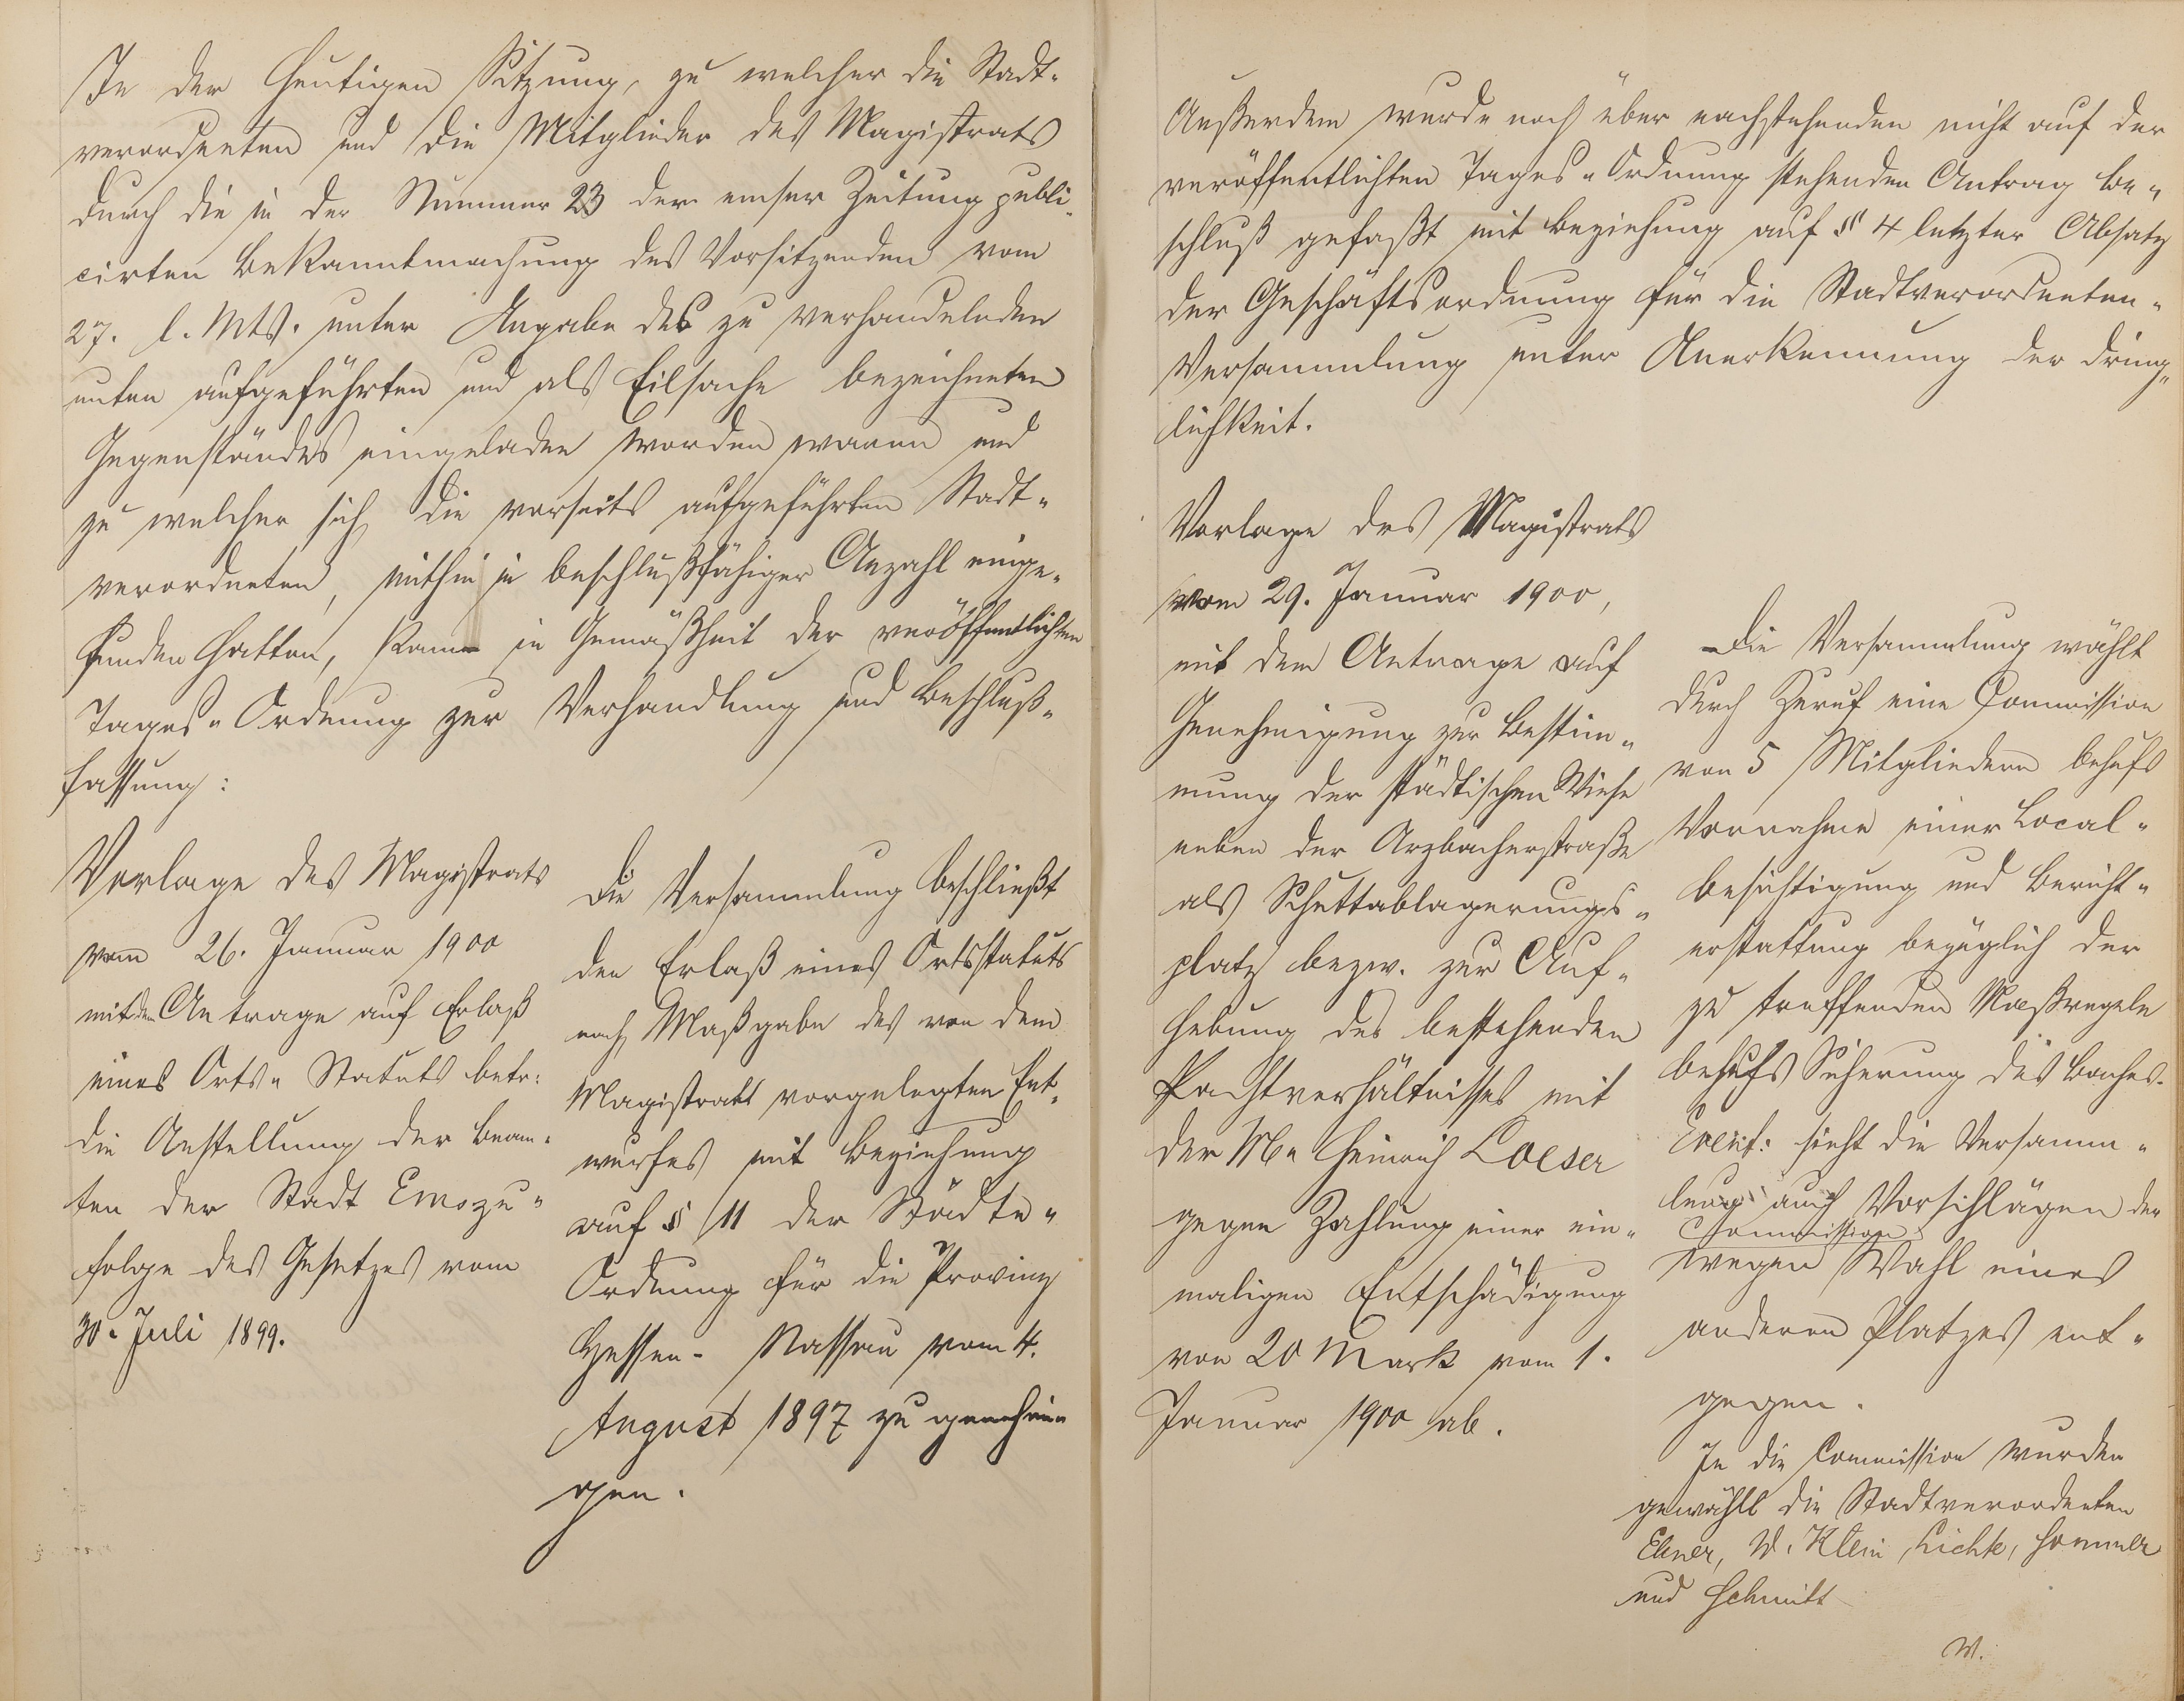 In der heutigen Sitzung, zu welcher die Stadt-
verordneten und die Mitglieder des Magistrats
durch die in der Nummer 23 der emser Zeitung publi-
cirten Bekanntmachung des Vorsitzenden vom
27. l. Mts. unter Angabe des zu verhandelnden
unten aufgeführten und als Eilsache bezeichneten
Gegenstandes eingeladen worden waren und
zu welcher sich die vorseits aufgeführten Stadt-
verordneten, mithin in beschlußfähiger Anzahl einge-
funden hatten, kam in Gemäßheit der veröffentlichten
Tages-Ordnung zur Verhandlung und Beschluß-
fassung:
Vorlage des Magistrats
vom 26. Januar 1900
mit dem Antrage auf Erlaß
eines Orts-Statuts betr:
die Anstellung der Beam-
ten der Stadt Ems zu-
folge des Gesetzes vom
30. Juli 1899.
Die Versammlung beschließt
den Erlaß eines Ortsstatuts
nach Maßgabe des von dem
Magistrat vorgelegten Ent-
wurfes mit Beziehung
auf § 11 der Städte-
Ordnung für die Provinz
Hessen-Nassau vom 4.
August 1897 zu genehmi-
gen.
Außerdem wurde noch über nachstehenden nicht auf der
veröffentlichten Tages-Ordnung stehenden Antrag Be-
schluß gefaßt mit Beziehung auf § 4 letzter Absatz
der Geschäftsordnung für die Stadtverordneten-
Versammlung unter Anerkennung der Dring-
lichkeit.
Vorlage des Magistrats
vom 29. Januar 1900,
mit dem Antrage auf
Genehmigung zur Bestim-
mung der städtischen Wiese
neben der Arzbacherstraße
als Schuttablagerungs-
platz bezw. zur Auf-
hebung des bestehenden
Pachtverhältnisses mit
der Me Heinrich Loeser
gegen Zahlung einer ein-
maligen Entschädigung
von 20 Mark vom 1.
Januar 1900 ab.
Die Versammlung wählt
durch Zuruf eine Commission
von 5 Mitgliedern behufs
Vornahme einer Local-
besichtigung und Bericht-
erstattung bezüglich der
zu treffenden Maßregeln
behufs Sicherung des Baches.
Event: sieht die Versamm-
lung auch Vorschlägen der
Commission
wegen Wahl eines
anderen Platzes ent-
gegen.
In die Commission wurden
gewählt die Stadtverordneten
Ebner, W. Klein, Lichte, Sommer
und Schmitt
W.